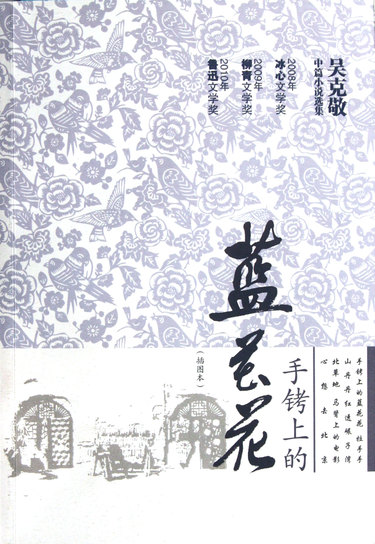 吴克敬
中篇小说选集
2008年
冰心文学奖
2009年
柳青文学奖
2010年
鲁迅文学奖
手铐上的
蓝花花
(插图本)
手铐上的蓝花花 拉手手
山丹丹红透碾子湾
北草地 马背上的电影
心想去北京